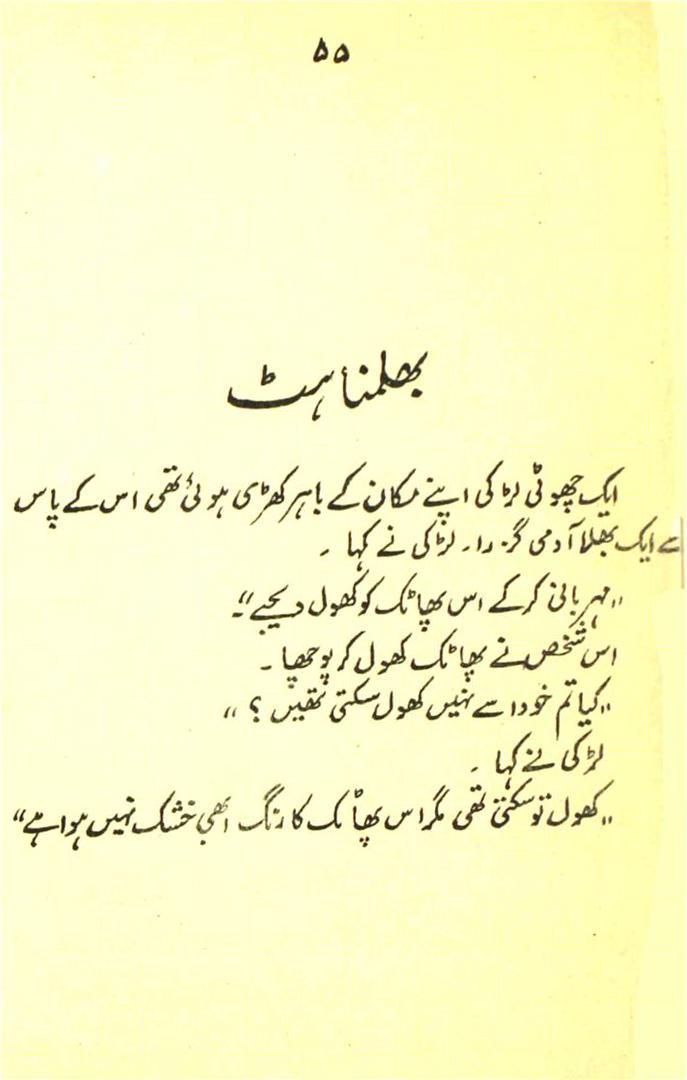 ۵۵
بھلمناہٹ
ایک چھوٹی لڑکی اپنے مکان کے باہر کھڑی ہوئی تھی اس کے پاس
سے ایک بھلا آدمی گزرا۔ لڑکی نے کہا۔
"مہربانی کرکے اس پھاٹک کو کھول دیجیے"۔
اس شخص نے پھاٹک کھول کر پوچھا۔
"کیا تم خود اسے نہیں کھول سکتی تھیں؟"
لڑکی نے کہا۔
"کھول تو سکتی تھی مگر اس پھاٹک کا رنگ ابھی خشک نہیں ہوا ہے"